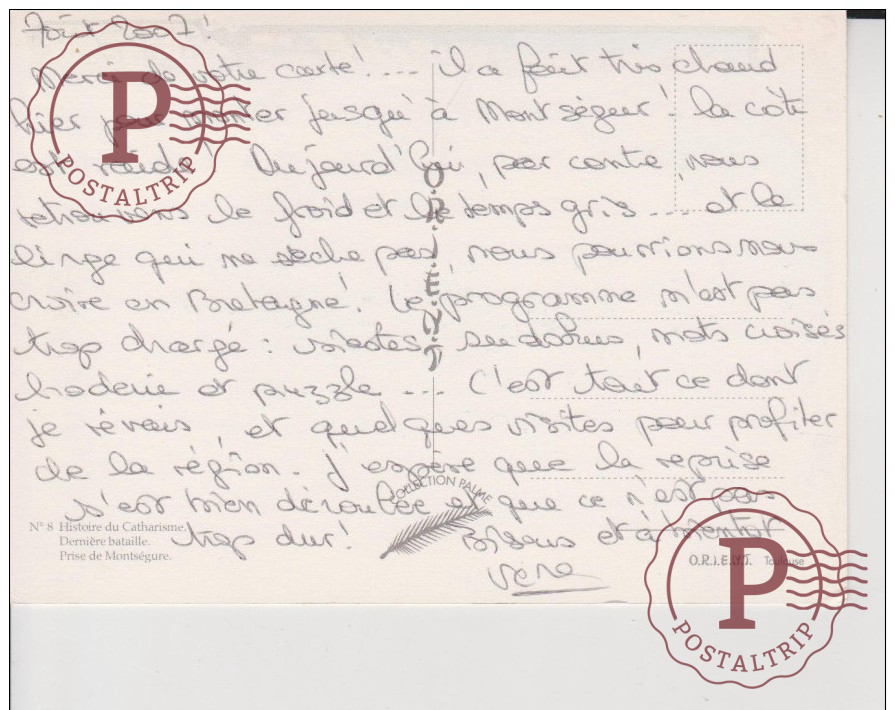 Août 2007!
Merci de votre carte! .... il a fait très chaud
hier pour monter jusqu'à Montségur! la côte
est raide! Aujourd'hui, par contre, nous
retrouvons le froid et le temps gris ... et le
linge qui ne sèche pas, nous pourrions nous
croire en Bretagne! Le programme n'est pas
trop chargé : siestes, sudokus, mots croisés
broderie et puzzle ... C'est tout ce dont
je rêvais, et quelques visites pour profiter
de la région. J'espère que la reprise
s'est bien déroulée et que ce n'est pas
trop dur!
Bisous et à bientôt
O.R.I.E.N.T.
COLLECTION PALME
N° 8 Histoire du Catharisme.
Dernière bataille.
Prise de Montségure.
O.R.I.E.N.T. Toulouse
P
POSTALTRIP
P
POSTALTRIP